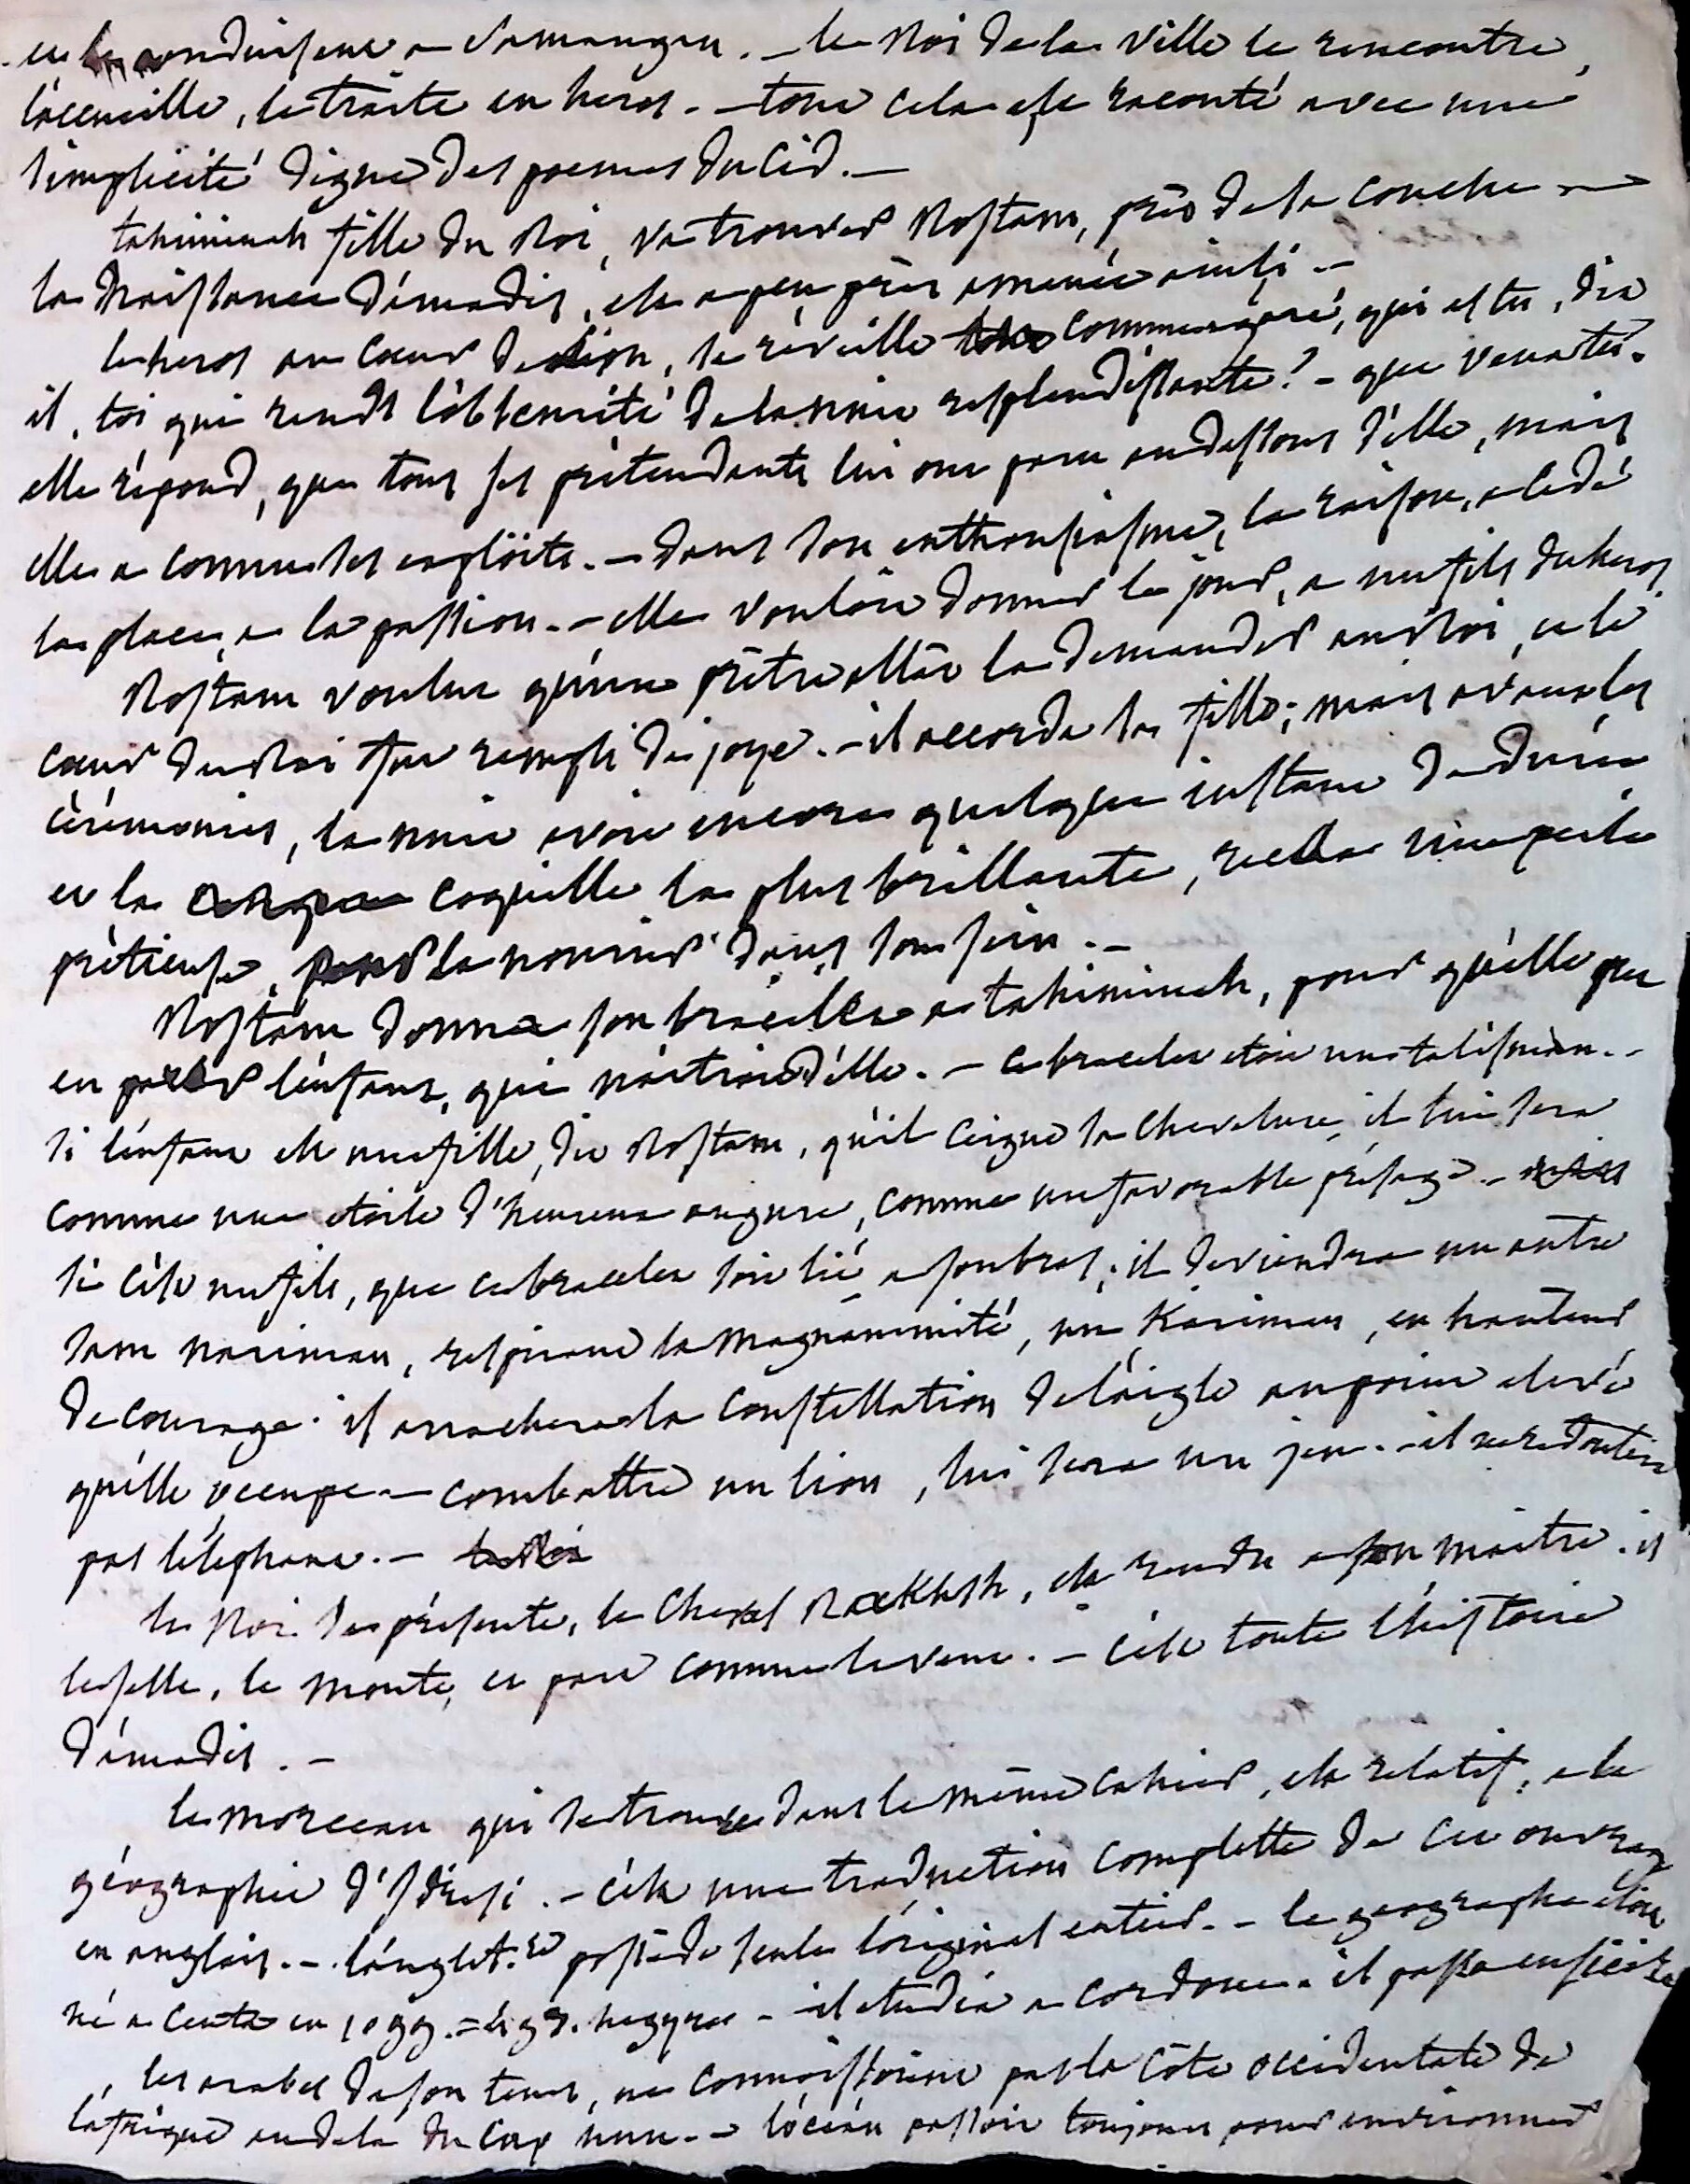 et le conduisent a Samangan. – le Roi de la ville le rencontre,
l'accueille, le traite en heros. – tout cela est raconté avec une
simplicité digne des poemes du Cid. –
tahimineh fille du Roi, va trouver Rostam, près de sa couche –
la naissance d'amadis, est a peu près amenée ainsi. –
le heros au coeur de lion, se réveille comme egaré, qui es tu, dit
il, toi qui rends l'obscurité de la nuit resplendissante? – que veux tu.
elle répond, que tous ses prétendants lui ont paru audessous d'elle, mais
elle a connu ses exploits. – dans son enthousiasme, la raison, a cédé
la place, a la passion. – elle voulait donner le jour, a un fils du heros.
Rostam voulut qu'un prêtre allât la demander au Roi, et le
coeur du Roi fut rempli de joye. – il accorda sa fille; mais avant les
cérémonies, la nuit avoit encore quelque instant de durée,
et la coquille la plus brillante, recella une perle
prétieuse, pour la nourrir dans son sein. –
Rostam donna son bracelet a tahimineh, pour qu'elle pu
en parer l'enfant, qui naitroit d'elle. – ce bracelet etoit un talisman. –
si l'enfant est une fille, dit Rostam, qu'il ceigne sa chevelure, il lui sera
comme une etoile d'heureux augure, comme un favorable présage. –
si c'est un fils, que ce bracelet soit lié a son bras; il deviendra un autre
Sam nariman, respirant la magnanimité, un Kariman, en hauteur
de courage. il arrachera la constellation de l'aigle au point elevé
qu'elle occupe – combattre un lion, lui sera un jeu. – il ne redoutera
pas l'éléphant. –
le Roi se présente, le cheval Rakhsh, est rendu a son maitre. il
le selle, le monte, et part comme le vent. – c'est toute l'histoire
d'amadis. –
le morceau qui se trouve dans le même cahier, est relatif, a la
géographie d'Idrisi. – c'est une traduction complette de cet ouvrage
en anglais. – l'anglet.re possède seule l'original entier. – le geographe étoit
né a Ceuta en 1099. = 493. hegyre – il etudia a Cordoue. il passa en sicile
les arabes de son tems, ne connaissoient pas la côte occidentale de
l'afrique audela du Cap nun. – l'océan passoit toujours pour environner